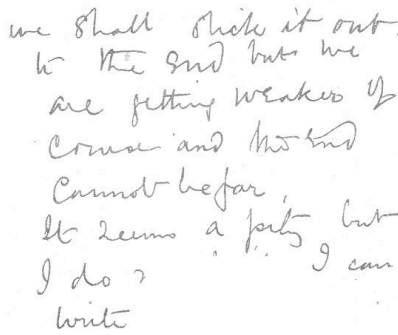 we shall stick it out
to the End but we
are getting weaker of
course and the End
cannot be far.
It seems a pity but
I do I can
write